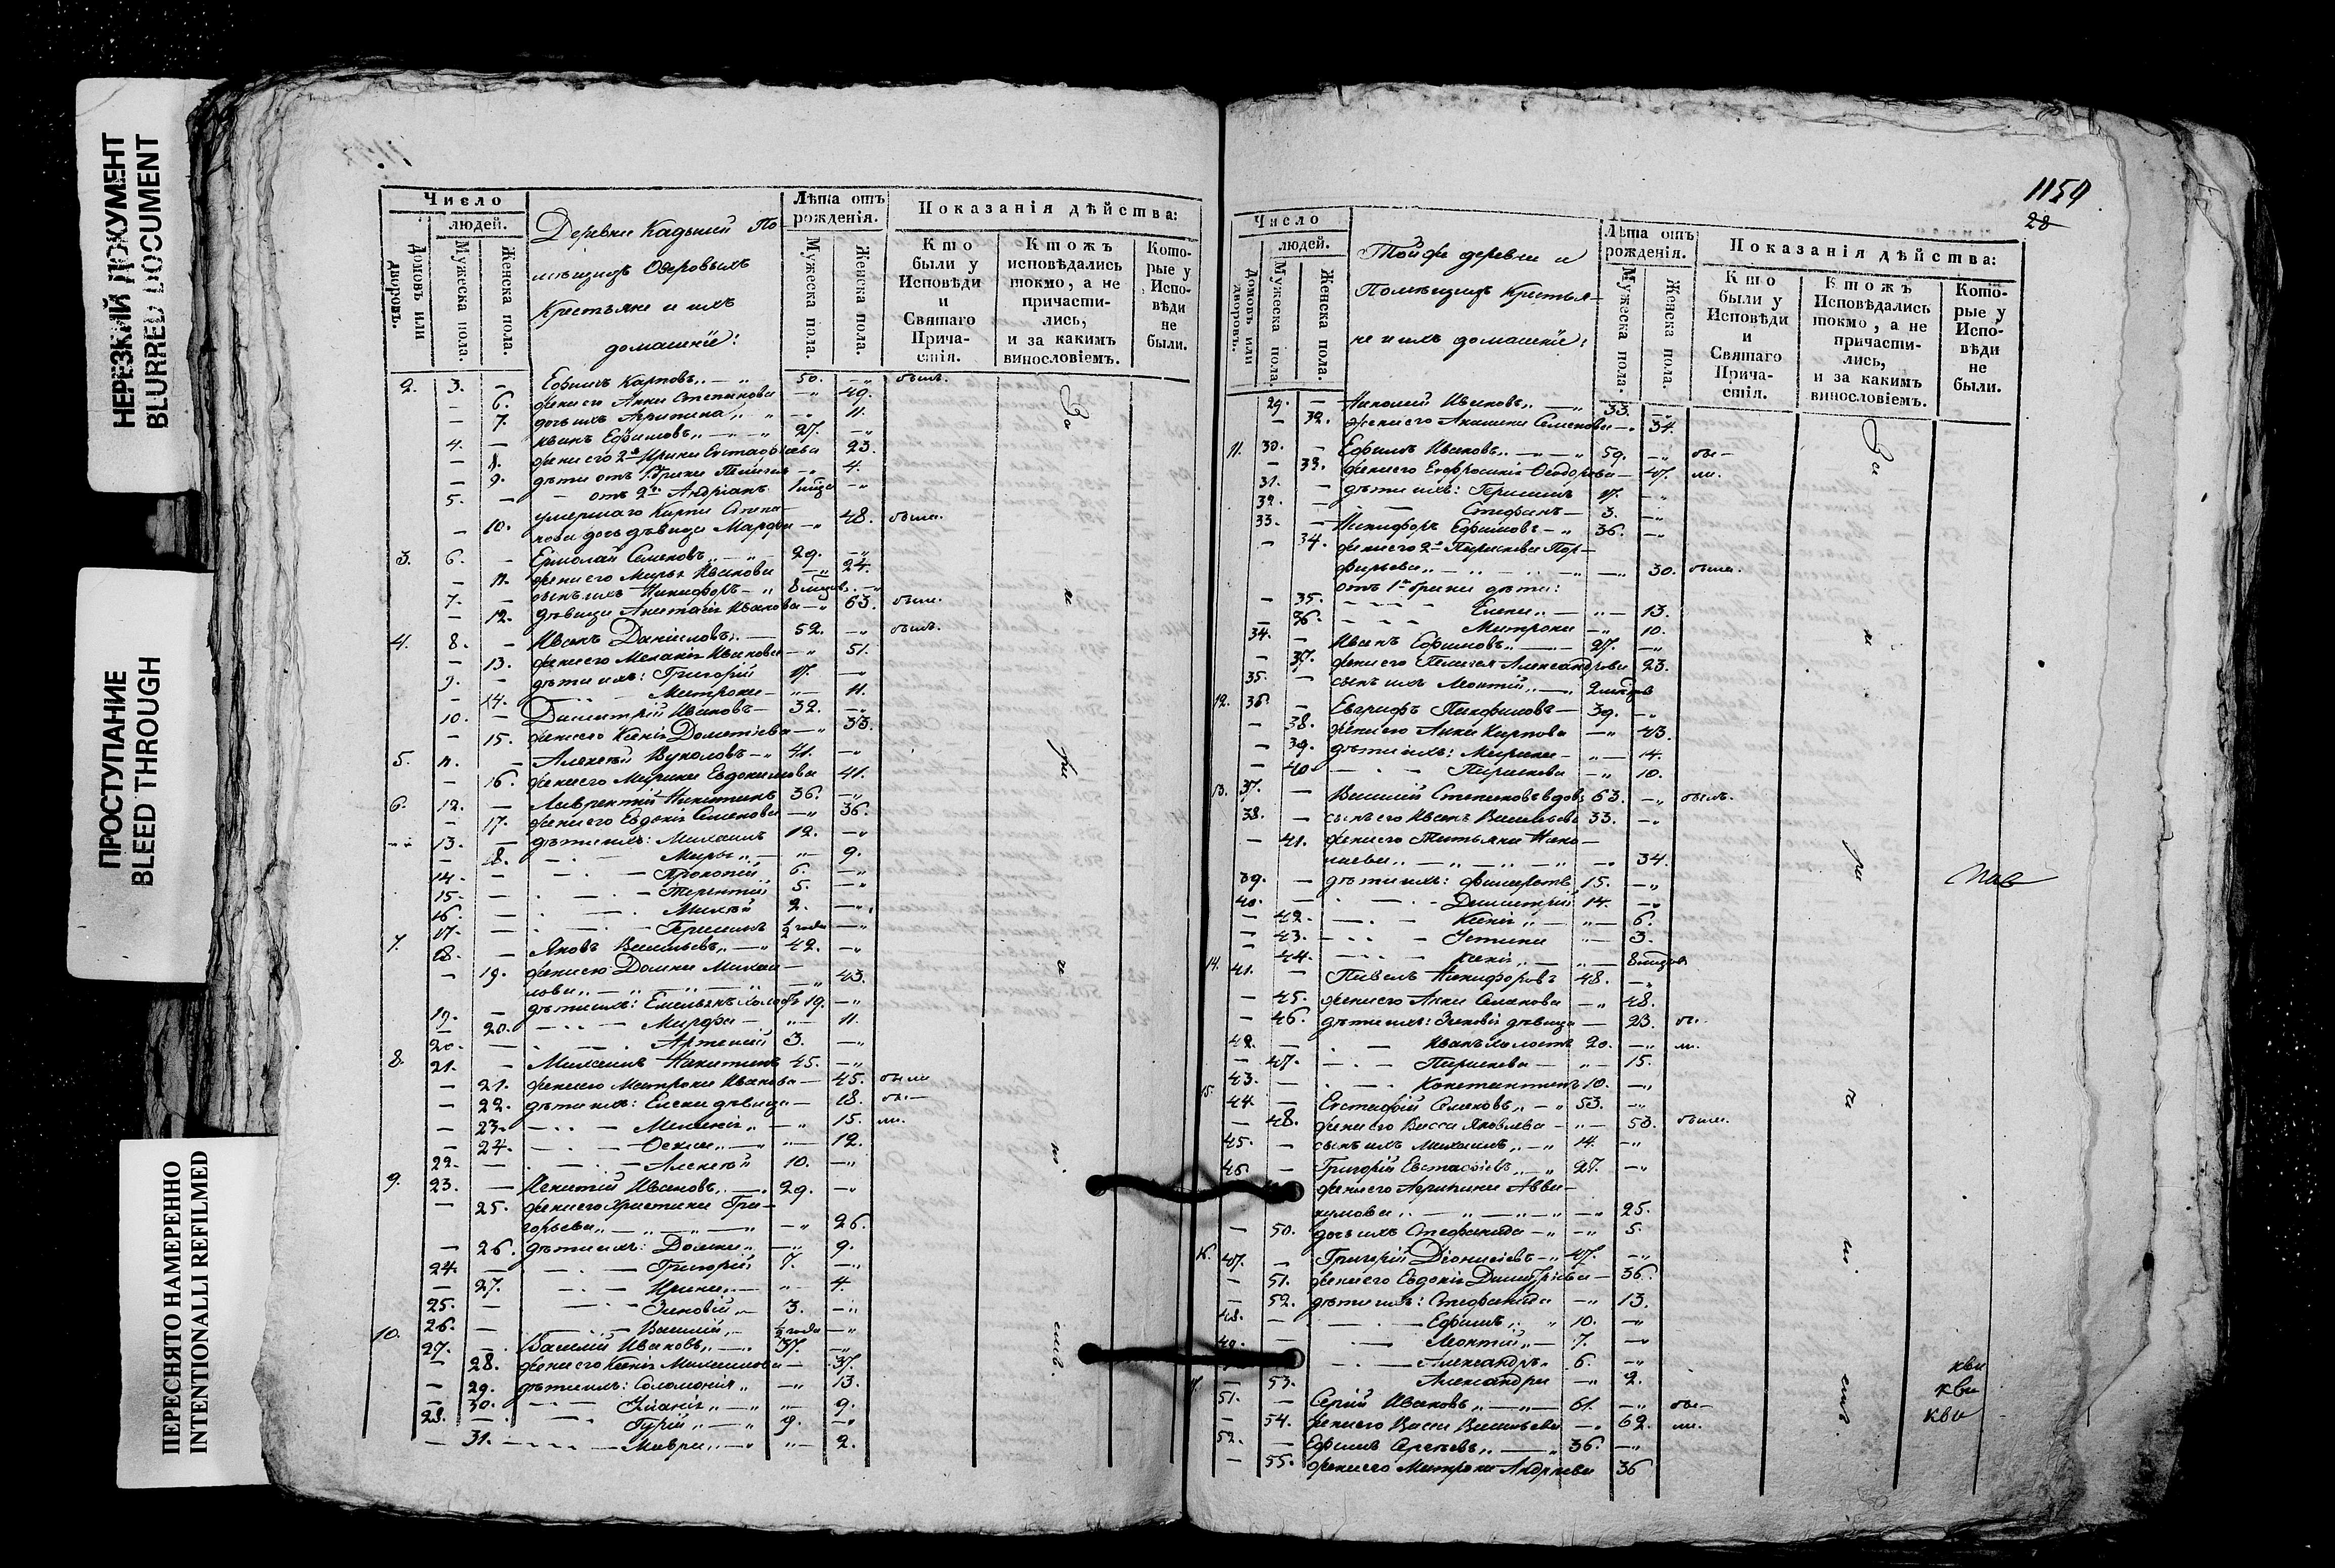 НЕРЕЗКИЙ ДОКУМЕНТ
BLURRED DOCUMENT
ПРОСТУПАНИЕ
BLEED THROUGH
ПЕРЕСНЯТО НАМЕРЕННО
INTENTIONALLI REFILMED
Число
людей.
Домовъ или дворовъ.
Мужеска пола.
Женска пола.
Деревни По-
мѣщицъ Озеровыхъ
Крестьяне и ихъ
домашніе:
Лѣта отъ рожденія.
Мужеска пола.
Женска пола.
Показанія дѣйства:
Кто были у Исповѣди и Святаго Причастія.
Ктожъ исповѣдались токмо, а не причастились, и за какимъ винословіемъ.
Которые у Исповѣди не были.
2. 3. — Ефимъ Карповъ 50. — былъ.
— 6. жена его Анна Степанова — 49.
— 7. дочь ихъ Агрипина — 11.
4. — Иванъ Ефимовъ 27. —
— 8. жена его 2я Ирина Евстафіева 23.
— 9. дѣти отъ 1. брака Пелагея — 4.
5. — отъ 2го Андріанъ —
умершаго Карпа Степа-
— 10. нова дочь дѣвица Марфа — 48. была.
3. 6. — Ермолай Семеновъ 29. —
— 11. жена его Марья Иванова — 24.
7. — сынъ ихъ Никифоръ 8 —
— 12. дѣвица Анастасія Иванова — 63. была.
4. 8. — Иванъ Даніиловъ 52. — былъ.
— 13. жена его Меланія Иванова — 51.
9. — дѣти ихъ: Григорій 17. —
— 14. Матрона — 11.
10. — Димитрій Ивановъ 32. —
— 15. жена его Ксенія Дометіева — 33.
5. 11. — Алексѣй Вуколовъ 41. —
— 16. жена его Марина Евдокимова 41.
6. 12. — Лаврентій Никитинъ 36. —
— 17. жена его Евдокія Семенова — 36.
13. — дѣти ихъ: Михаилъ 12. —
— 18. Марья — 9.
14. — Прокопій 6. —
15. — Терентій 5. —
16. — Михей 2. —
17. — Герасимъ ½ года —
7. 18. — Яковъ Васильевъ 42. —
— 19. жена его Домна Михаи-
лова — 43.
19. — дѣти ихъ: Емельянъ холостъ 19. —
— 20. Марфа — 11.
20. — Артемій 3. —
8. 21. — Михаилъ Никитинъ 45. —
— 21. жена его Матрона Иванова — 45. были
— 22. дѣти ихъ: Елена дѣвица — 18. бы—
— 23. Меланія — 15. ли.
— 24. — 12.
22. — Алексѣй 10. —
9. 23. — Ивановъ 29. —
— 25. жена его Христина Гри-
горьева — 26.
— 26. дѣти ихъ: Домна — 9.
24. — Григорій 7. —
— 27. Ирина — 4.
25. — Зиновій 3. —
26. — Василій ½ года —
10. 27. — Василій Ивановъ 37. —
— 28. жена его Ксенія Михаилова — 37.
— 29. дѣти ихъ: Соломонія — 13.
— 30. Уліанія — 9.
28. — Гурій 9. —
— 31. Мавра — 2.
За
1159
28
Число
людей.
Домовъ или дворовъ.
Мужеска пола.
Женска пола.
Тойже деревни и
Помѣщицъ Крестья-
не и ихъ домашніе:
Лѣта отъ рожденія.
Мужеска пола.
Женска пола.
Показанія дѣйства:
Кто были у Исповѣди и Святаго Причастія.
Ктожъ Исповѣдались токмо, а не причастились, и за какимъ винословіемъ.
Которые у Исповѣди не были.
29. — Ивановъ 33. —
— 32. жена его Акилина Семенова — 34.
11. 30. — Ефимъ Ивановъ 59. — бы—
— 33. жена его Евфросинія Ѳеодорова — 47. ли.
31. — дѣти ихъ: Герасимъ 17. —
32. — Стефанъ 3. —
33. — Никифоръ Ефимовъ 36. —
— 34. жена его 2я Параскева Пор-
фирьева — 30. была.
отъ 1го брака дѣти:
— 35. Елена — 13.
— 36. Матрона — 10.
34. — Иванъ Ефимовъ 27. —
— 37. жена его Пелагея Александрова 23.
35. — сынъ ихъ Леонтій 2
12. 36. — Евграфъ Панфиловъ 39. —
— 38. жена его Анна Карпова — 43.
— 39. дѣти ихъ: Марина — 14.
— 40. Параскева — 10.
13. 37. — Василій Степановъ вдовъ 63. — былъ.
38. — сынъ его Иванъ Васильевъ 33. —
— 41. жена его Татьяна Нико-
лаева — 34.
39. — дѣти ихъ: Филаретъ 15. —
40. — Димитрій 14. —
— 42. Ксенія — 6.
— 43. Устина — 3.
— 44. Ксенія — 8
14. 41. — Павелъ Никифоровъ 48. —
— 45. жена его Анна Семенова — 48.
— 46. дѣти ихъ: Зиновія дѣвица — 23. бы.
42. — Иванъ холостъ 20. — ли.
— 47. Параскева — 15.
43. — Константинъ 10. —
15. 44. — Евстафій Семеновъ 53. —
— 48. жена его Васса Яковлева — 53. была.
45. — сынъ ихъ Михаилъ 14. —
46. — Григорій Евстафіевъ 27. —
жена его Агрипина Авва-
кумова — 25.
— 50. дочь ихъ Стефанида — 5.
16. 47. — Григорій Діонисіевъ 47. —
— 51. жена его Евдокія Димитріева — 36.
— 52. дѣти ихъ: Стефанида — 13.
48. — Ефимъ 10. —
49. — Леонтій 7. —
— Александръ 6. —
— 53. Александра — 2.
51. — Сергій Ивановъ 61. — бы—
— 54. жена его Васса Васильева — 62. ли.
52. — Ефимъ Сергѣевъ 36. —
— 55. жена его Матрона Андреева 36
За